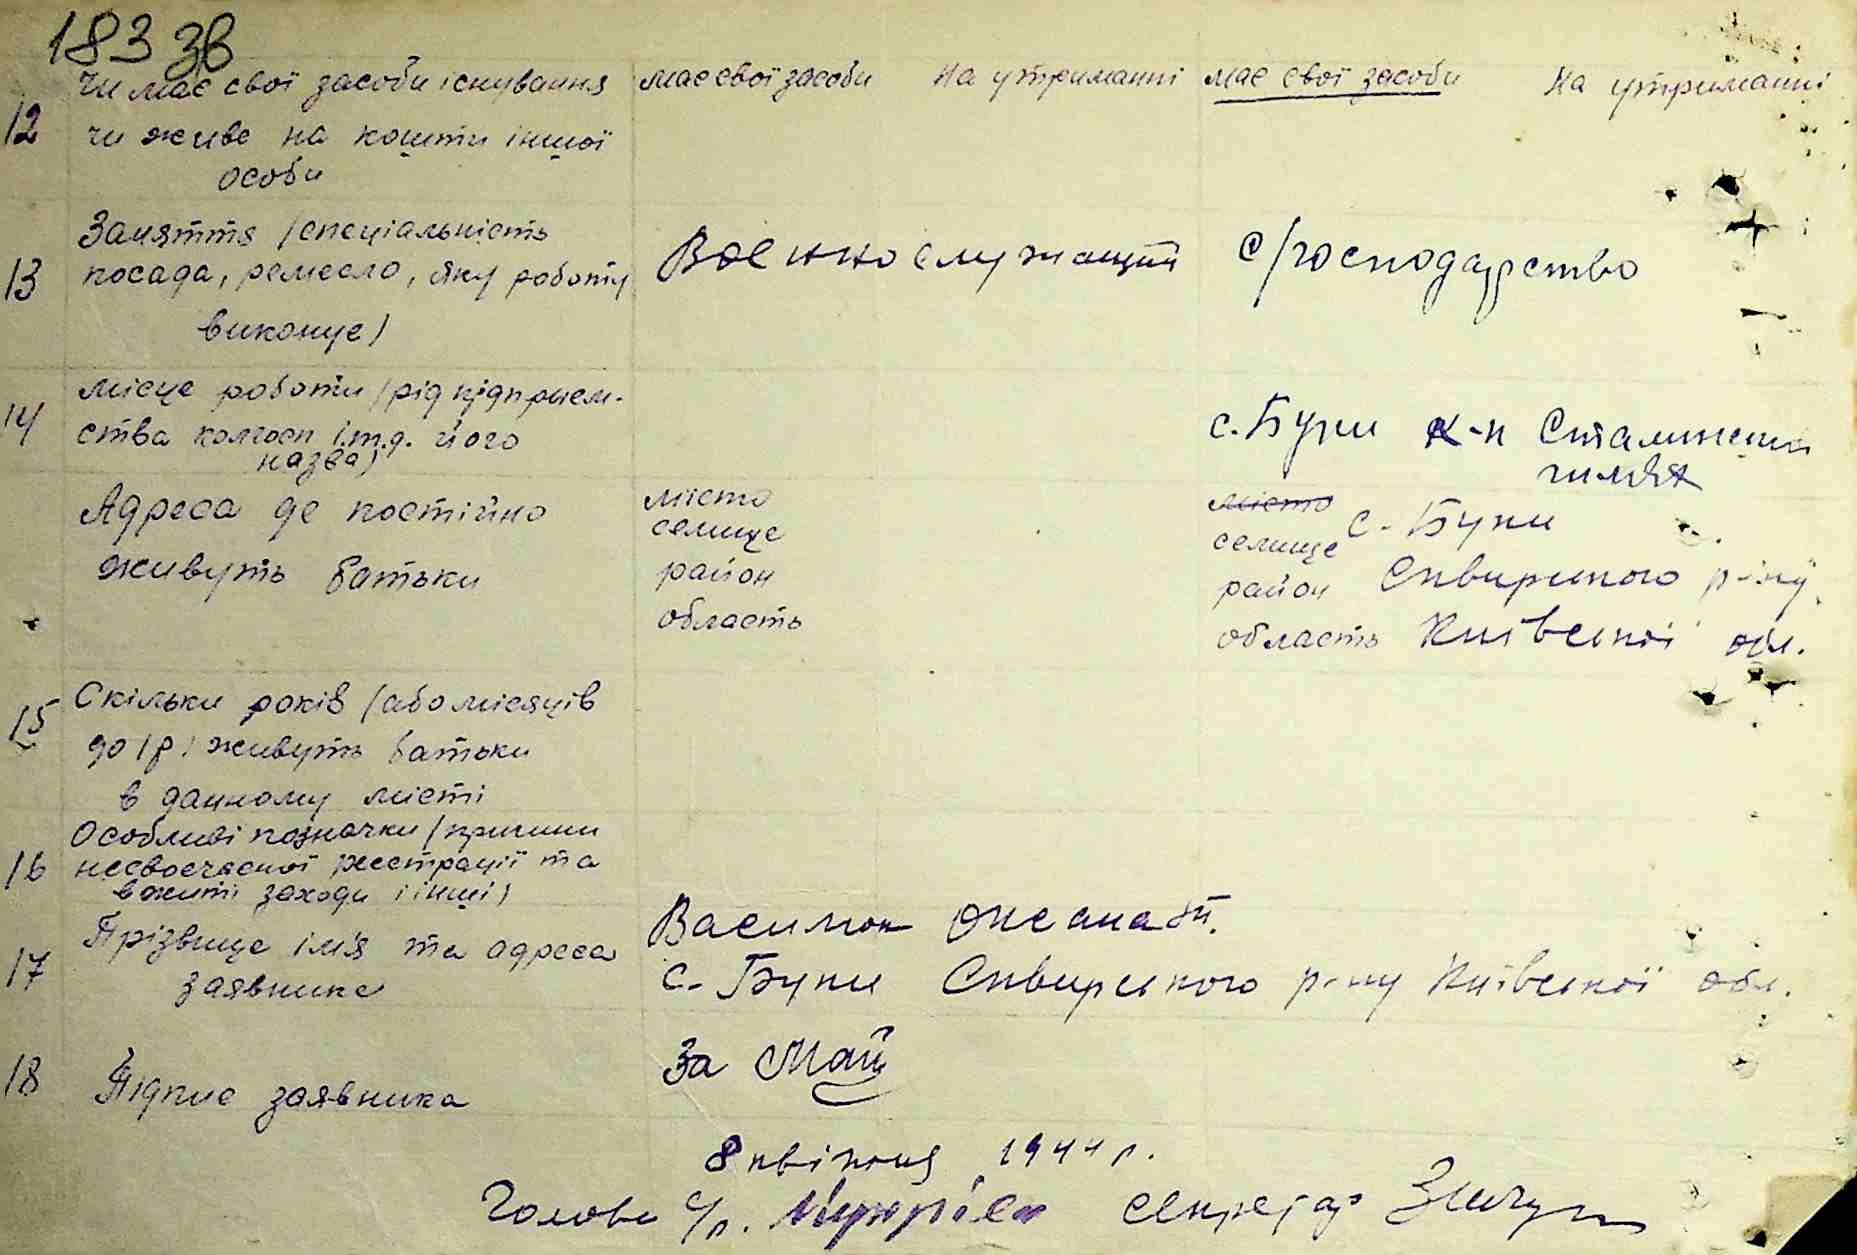 183 зв
12 Чи має свої засоби існування має свої засоби на утриманні має свої засоби на утриманні
чи живе на кошти іншої
особи
13 Заняття /спеціальність
посада, ремесло, яку роботу Военнослужащий с/господарство
виконує/
14 Місце роботи /рід підприєм-
ства колгосп і.т.д. його с. Буки к-п Сталінський
назва/ шлях
Адреса де постійно місто місто
живуть батьки селище селище с. Буки
район район Сквирського р-ну
область область Київської обл.
15 Скільки років /або місяців
до 1 р/ живуть батьки
в данному місті
16 Особливі позначки /причини
несвоєчасної реєстрації та
вжиті заходи і інші/
17 Прізвище ім'я та адреса Василюк Оксана
заявника с. Буки Сквирського р-ну Київської обл.
18 Підпис заявника За
8 квітня 1944 р.
Голова с/р. секретар